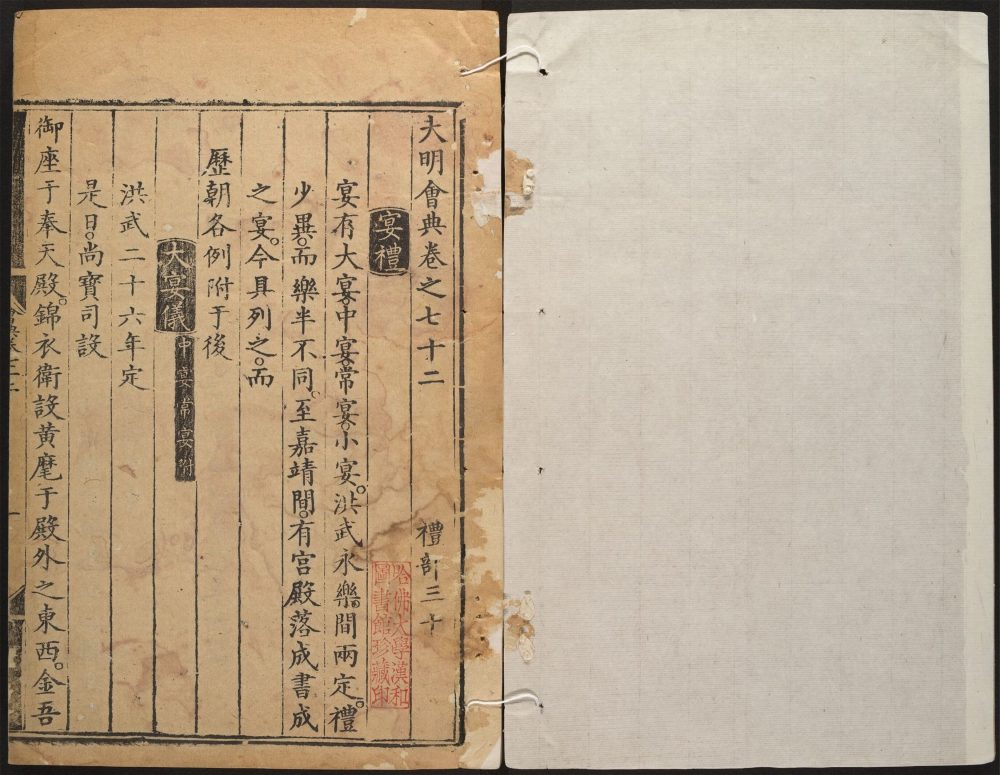 大明會典卷之七十二 禮部三十
宴禮
宴有大宴。中宴。常宴。小宴。洪武永樂間兩定。禮
少異。而樂半不同。至嘉靖間。有宮殿落成書成
之宴。今具列之。而
歷朝各例附于後
大宴儀 中宴常宴附
洪武二十六年定
是日。尚寶司設
御座于奉天殿。錦衣衛設黃麾于殿外之東西。金吾
哈佛大學漢和
圖書館珍藏印